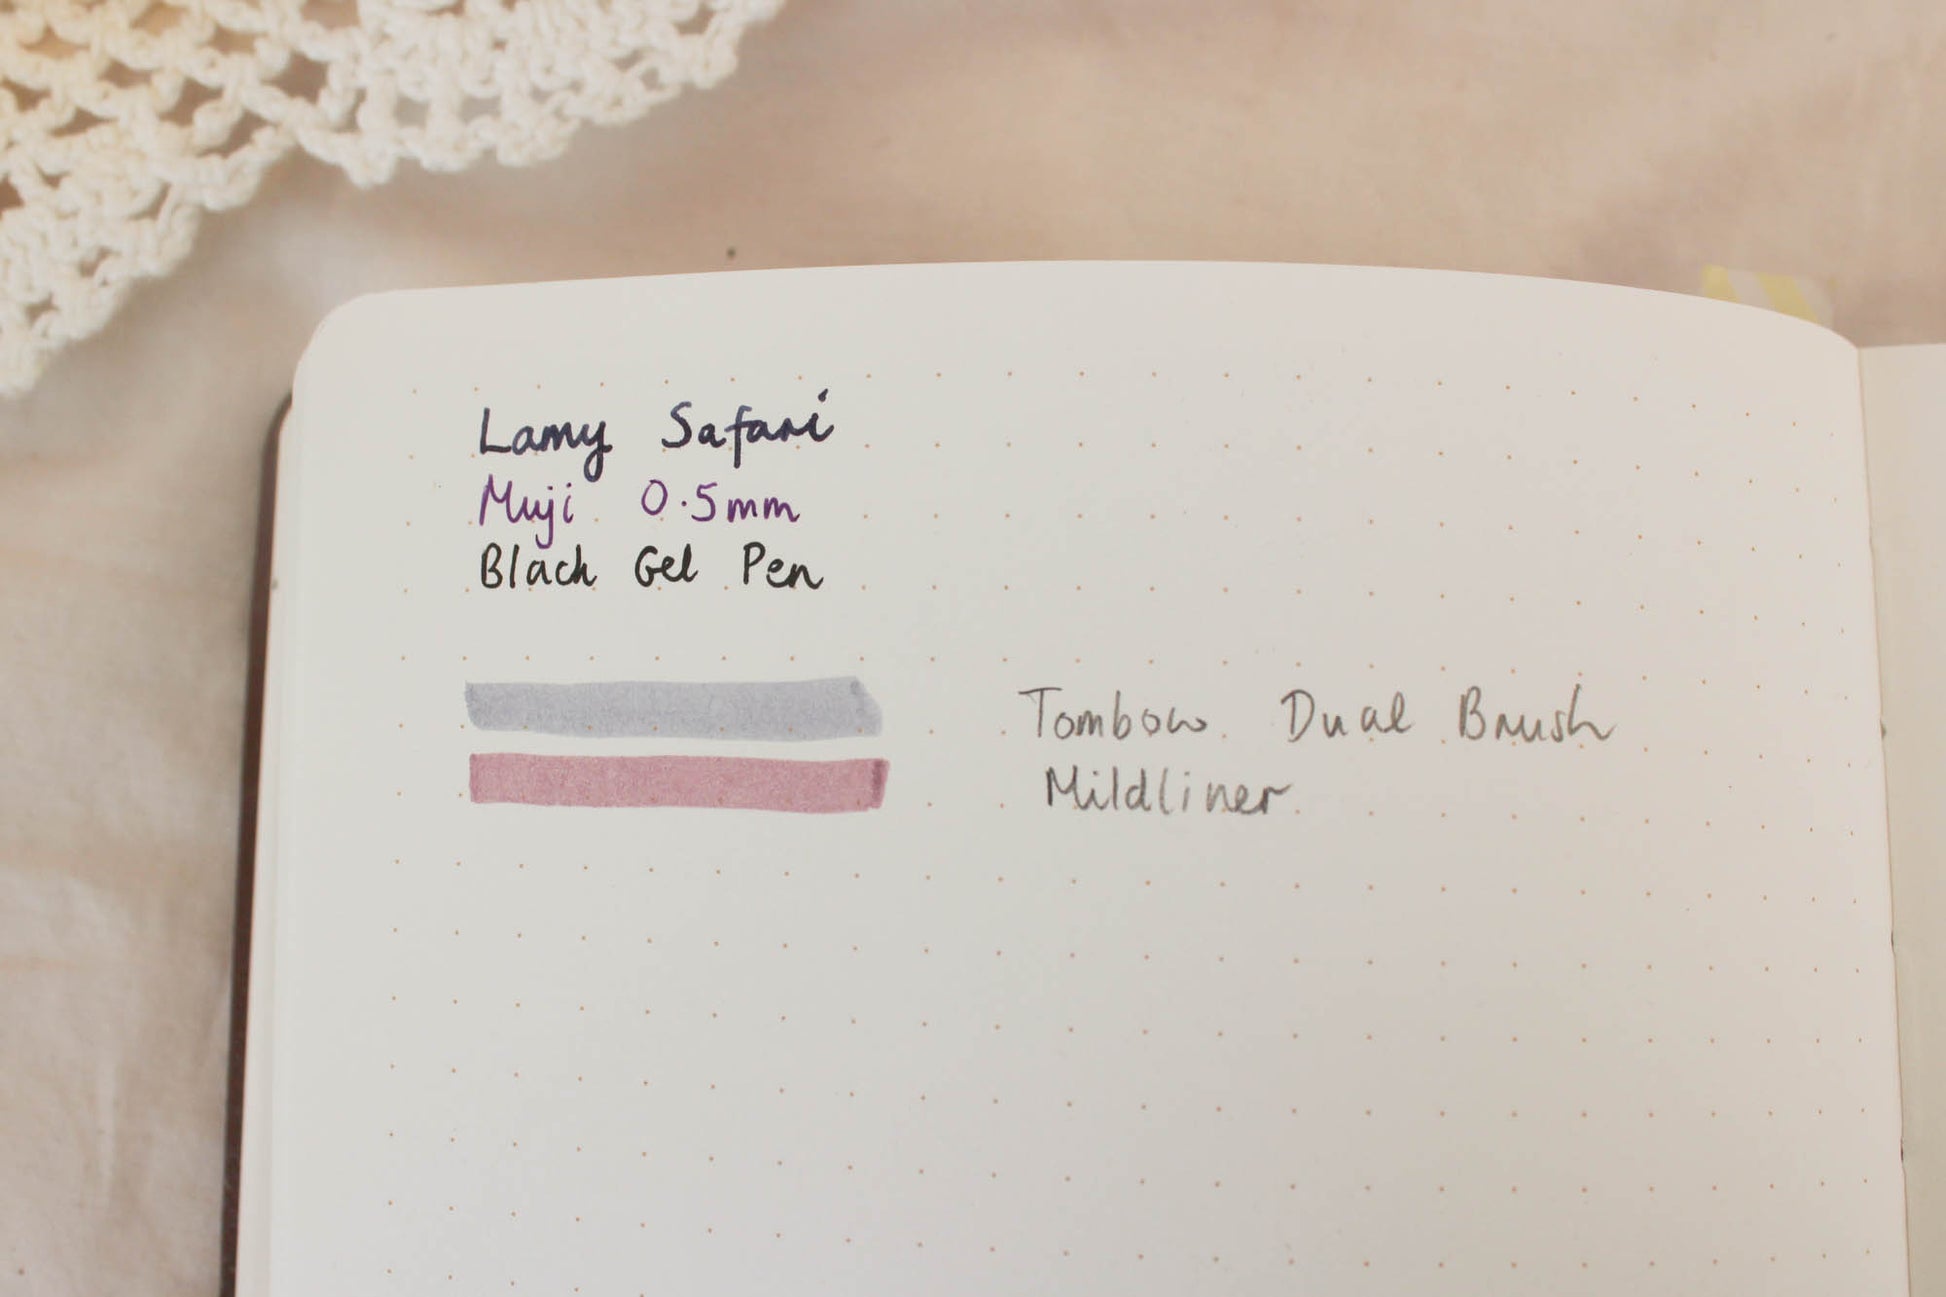 Lamy Safari
Muji 0.5mm
Black Gel Pen
Tombow Dual Brush
Mildliner